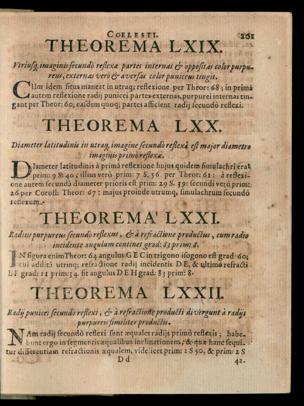 COELESTI. 201
THEOREMA LXIX.
Vtriusq; imaginis secundò reflexæ partes internas & oppositas color purpu-
reus, externas verò & aversas color puniceus tingit.
CUm idem situs maneat in utraq; reflexione per Theor: 68; in primâ
autem reflexione radii punicei partes externas, purpurei internas tin-
gant per Theor: 60, easdem quoq; partes afficient radii secundò reflexi.
THEOREMA LXX.
Diameter latitudinis in utraq; imagine secundò reflexâ est major diametro
imaginis primò reflexæ.
DIameter latitudinis à primâ reflexione hujus quidem simulachri erat
prim: 9 S: 40, illius verò prim: 7 S. 56. per Theor: 61: à reflexi-
one autem secundâ diameter prioris est prim: 29 S. 19: secundi verò prim:
26 per Coroll: Theor: 67; majus proinde utrumq; simulachrum secundò
reflexum.
THEOREMA LXXI.
Radius purpureus secundò reflexus, & à refractione productus, cum radio
incidente angulum continet grad: 83 prim: 8.
IN figura enim Theor: 64 angulus GEC in trigono isogono est grad: 60;
cui additâ utrinq; refractione radii incidentis DE, & ultimò refracti
EF grad: 11 prim: 34. fit angulus DEH grad: 83 prim: 8.
THEOREMA LXXII.
Radij punicei secundò reflexi, & à refractione producti divergunt à radijs
purpureis similiter productis.
NAm radii secundò reflexi sunt æquales radiis primò reflexis; habe-
bunt ergo in segmentis æqualibus inclinationem, & quæ hanc sequi-
tur differentiam refractionis æqualem, videlicet prim: 2 S 50, & prim: 2 S
D d 42.